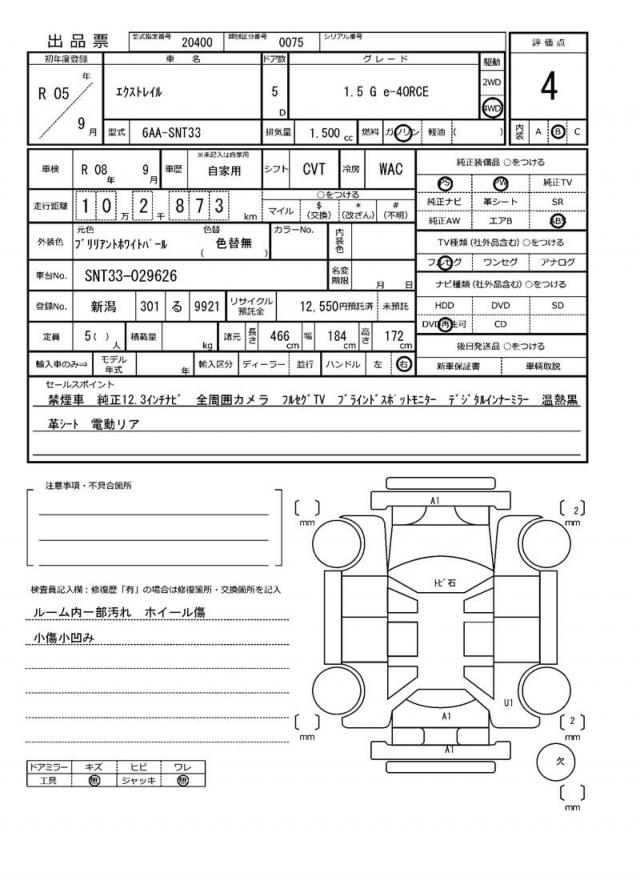 出品票 型式指定番号 20400 類別区分番号 0075 シリアル番号
評価点
4
内装 A B C
初年度登録 車名 ドア数 グレード 駆動
R 05 年 9 月 エクストレイル 5 D 1.5 G e-4ORCE 2WD 4WD
型式 6AA-SNT33 排気量 1.500 cc 燃料 ガソリン 軽油 ( )
車検 R 08 年 9 月 車歴 ※未記入は自家用 自家用 シフト CVT 冷房 WAC
走行距離 10万2千873 km ○をつける
マイル $(交換) *(改ざん) #(不明)
外装色 元色 ブリリアントホワイトパール 色替 ( 色替無 ) カラーNo. 内装色
車台No. SNT33-029626 名変期限 月 日
登録No. 新潟 301 る 9921 リサイクル預託金 12,550円預託済 未預託
定員 5( )人 積載量 kg 諸元 長さ 466 cm 幅 184 cm 高さ 172 cm
輸入車のみ⇒ モデル年式 年 輸入区分 ディーラー 並行 ハンドル 左 右
純正装備品 ○をつける
PS PW 純正TV
純正ナビ 革シート SR
純正AW エアB ABS
TV種類 (社外品含む) ○をつける
フルセグ ワンセグ アナログ
ナビ種類 (社外品含む) ○をつける
HDD DVD SD
DVD再生可 CD
後日発送品 ○をつける
新車保証書 車輌取説
セールスポイント
禁煙車 純正12.3インチナビ 全周囲カメラ フルセグTV ブラインドスポットモニター デジタルインナーミラー 温熱黒
革シート 電動リア
注意事項・不具合箇所
検査員記入欄：修復歴「有」の場合は修復箇所・交換箇所を記入
ルーム内一部汚れ ホイール傷
小傷小凹み
ドアミラー キズ ヒビ ワレ
工具 無 ジャッキ 無
[ ] mm
A1
[ 2 ] mm
トビ石
U1
A1
[ ] mm
A1
[ 2 ] mm
欠
[ ] mm